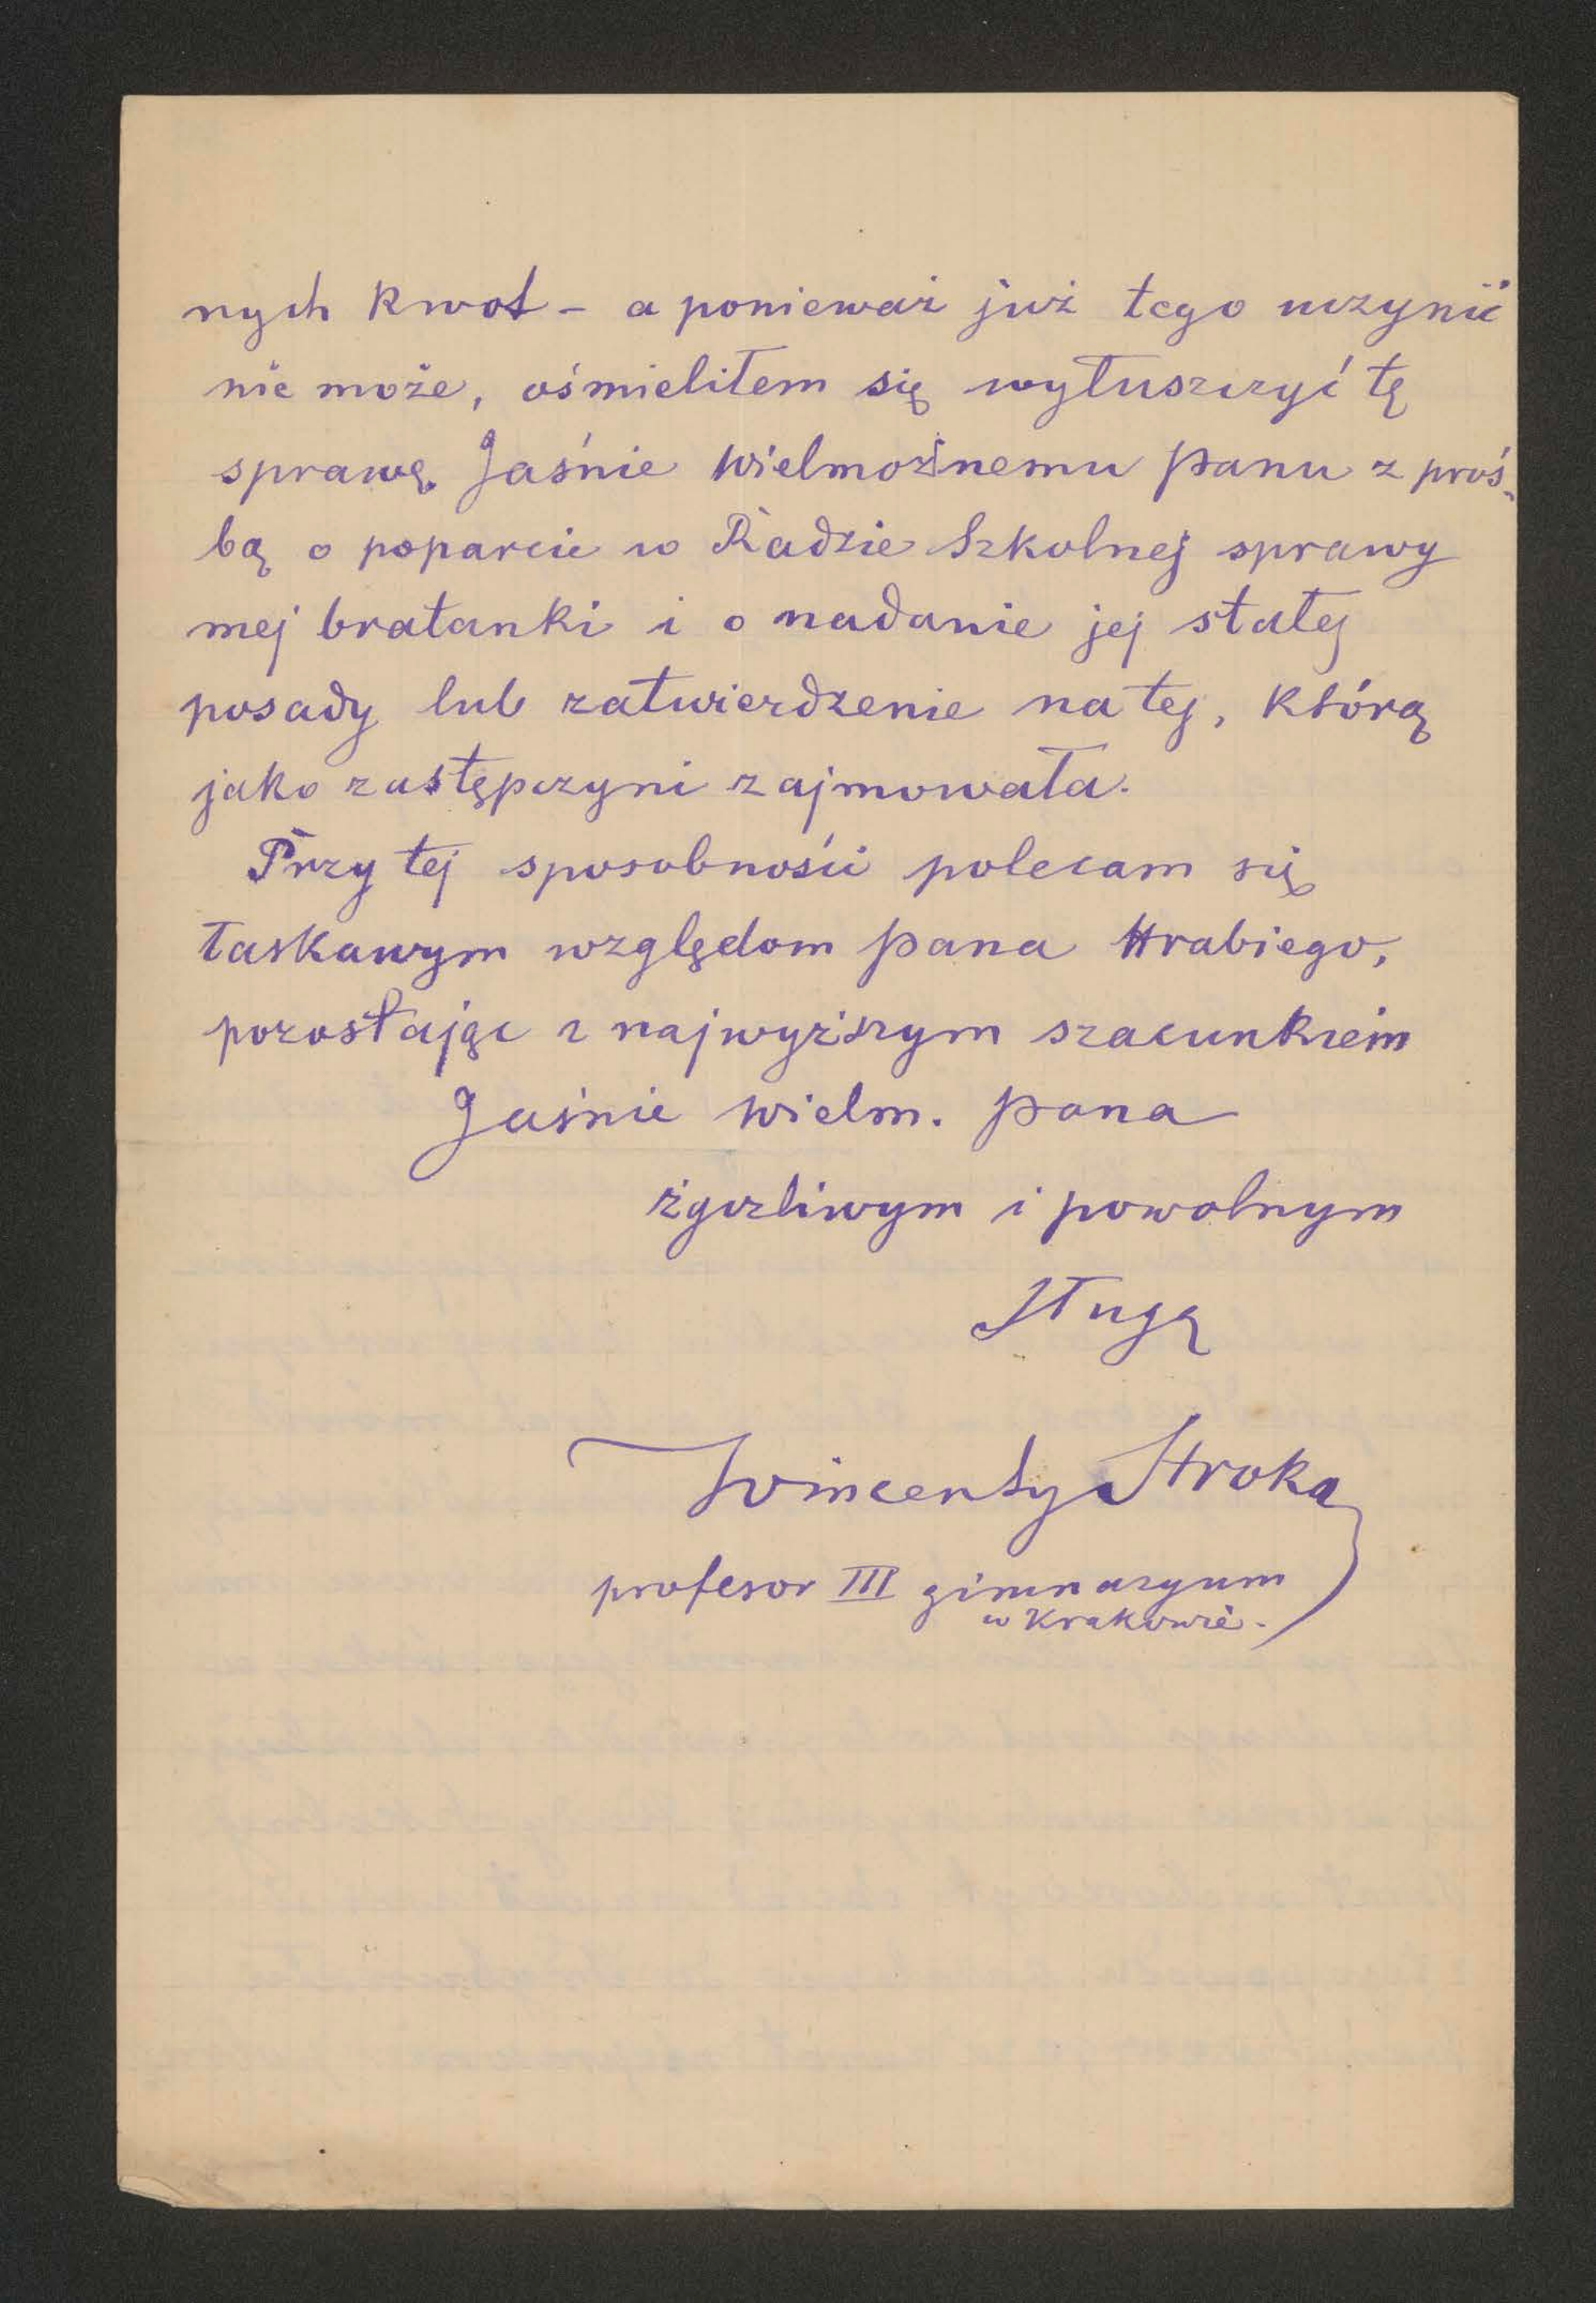 nych kwot – a ponieważ już tego uczynić
nie może, ośmieliłem się wyłuszczyć tę
sprawę Jaśnie Wielmożnemu Panu z proś-
bą o poparcie w Radzie Szkolnej sprawy
mej bratanki i o nadanie jej stałej
posady lub zatwierdzenie na tej, którą
jako zastępczyni zajmowała.
Przy tej sposobności polecam się
łaskawym względom Pana Hrabiego,
pozostając z najwyższym szacunkiem
Jaśnie Wielm. Pana
życzliwym i powolnym
sługą
Wincenty Stroka
profesor III gimnazyum
w Krakowie.